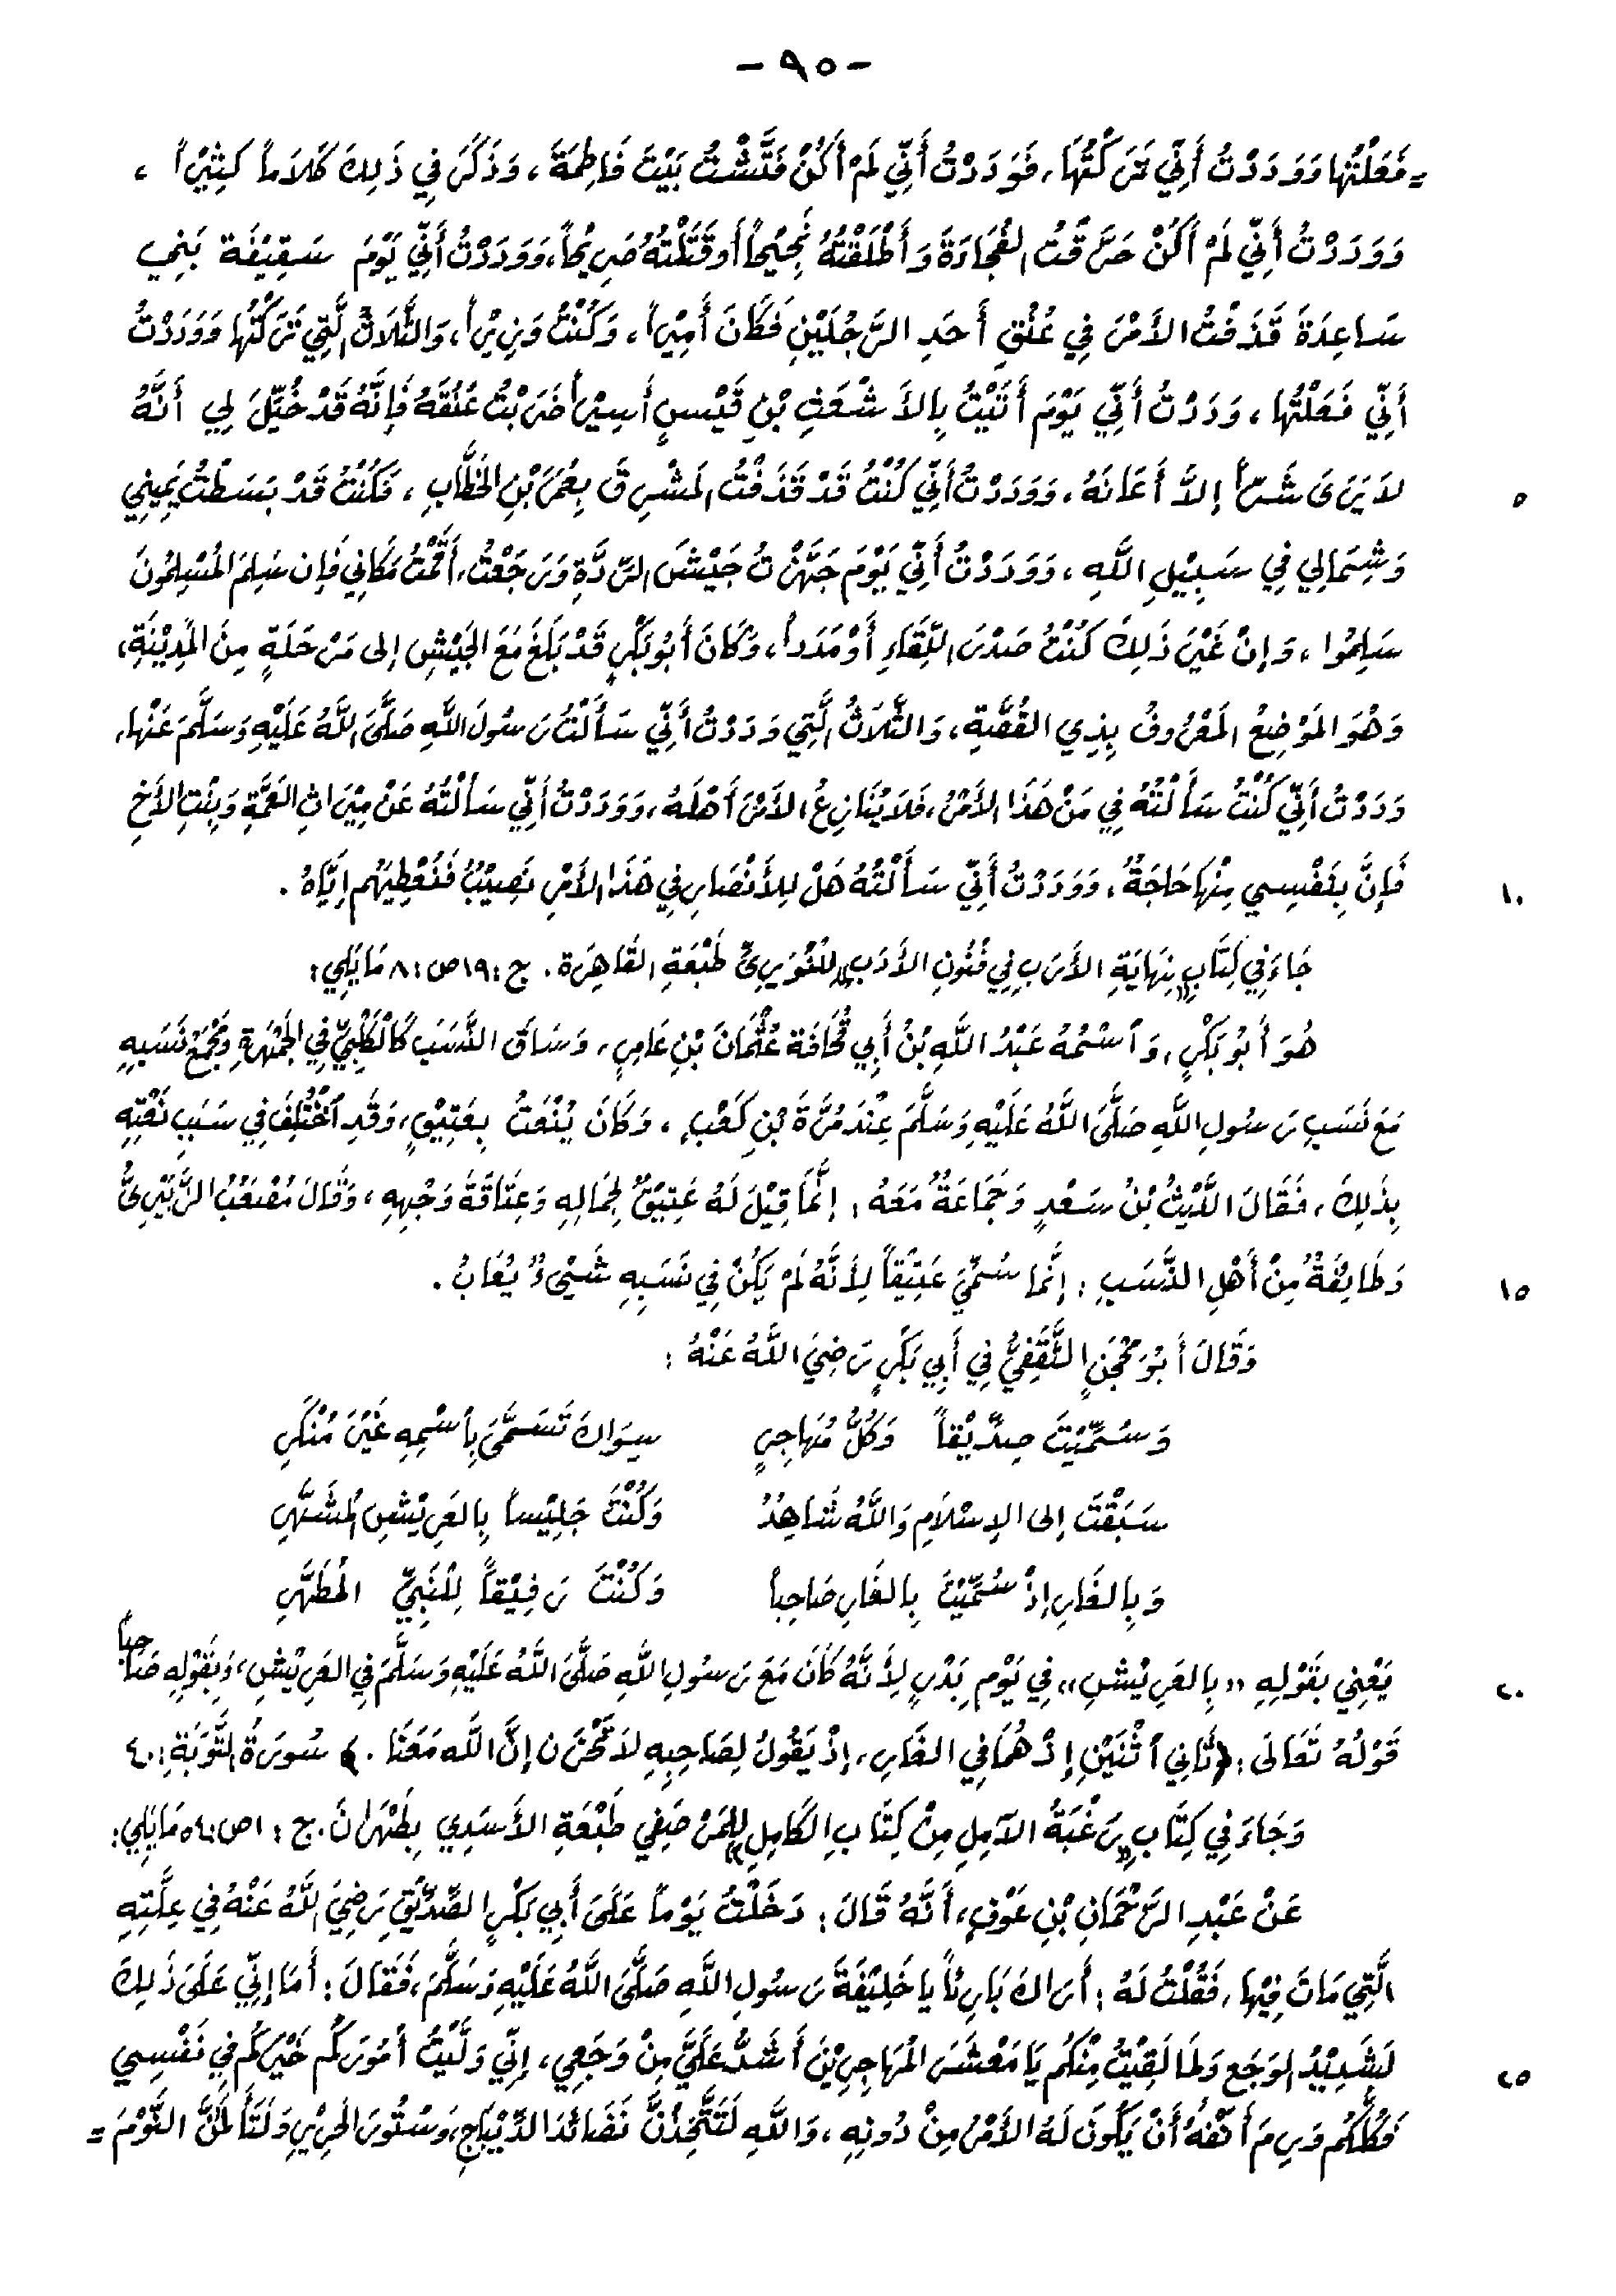 - ٩٥ -
= فَعَلْتُهَا وَوَدَدْتُ أَنِّي تَرَكْتُهَا، فَوَدَدْتُ أَنِّي لَمْ أَكُنْ فَتَّشْتُ بَيْتَ فَاطِمَةَ، وَذَكَرَ فِي ذَلِكَ كَلَاماً كَثِيْراً،
وَوَدَدْتُ أَنِّي لَمْ أَكُنْ حَرَّقْتُ الفُجَاءَةَ وَأَطْلَقْتُهُ نَجِيْحاً أَو قَتَلْتُهُ صَرِيْحاً، وَوَدَدْتُ أَنِّي يَوْمَ سَقِيْفَة بَنِي
سَاعِدَةَ قَذَفْتُ الأَمْرَ فِي عُنُقِ أَحَدِ الرَّجُلَيْنِ فَكَانَ أَمِيْراً، وَكُنْتُ وَزِيْراً، وَالثَّلَاثُ الَّتِي تَرَكْتُهَا وَوَدَدْتُ
أَنِّي فَعَلْتُهَا، وَدَدْتُ أَنِّي يَوْمَ أَتَيْتُ بِالأَشْعَثِ بْنِ قَيْسٍ أَسِيْراً ضَرَبْتُ عُنُقَهُ فَإِنَّهُ قَدْ خُيِّلَ لِي أَنَّهُ
لَا يَرَى شَرّاً إِلاَّ أَعَانَهُ، وَوَدَدْتُ أَنِّي كُنْتُ قَدْ قَذَفْتُ المَشْرِقَ بِعُمَرَ بْنِ الخَطَّابِ، فَكُنْتُ قَدْ بَسَطْتُ يَمِيْنِي
٥
وَشِمَالِي فِي سَبِيْلِ اللَّهِ، وَوَدَدْتُ أَنِّي يَوْمَ جَهَّزْتُ جَيْشَ الرِّدَّةِ وَرَجَعْتُ، أَقَمْتُ مَكَانِي فَإِن سَلِمَ المُسْلِمُونَ
سَلِمُوا، وَإِنْ غَيْرَ ذَلِكَ كُنْتُ صَدْرَ اللِّقَاءِ أَوْ مَدَداً، وَكَانَ أَبُو بَكْرٍ قَدْ بَلَغَ مَعَ الجَيْشِ إِلى مَرْحَلَةٍ مِنَ المَدِيْنَةِ،
وَهُوَ المَوْضِعُ المَعْرُوفُ بِذِي القُصَّةِ، وَالثَّلَاثُ الَّتِي وَدَدْتُ أَنِّي سَأَلْتُ رَسُولَ اللَّهِ صَلَّى اللَّهُ عَلَيْهِ وَسَلَّمَ عَنْهَا،
وَدَدْتُ أَنِّي كُنْتُ سَأَلْتُهُ فِي مَنْ هَذَا الأَمْرُ، فَلَا يُنَازِعُ الأَمْرَ أَهْلَهُ، وَوَدَدْتُ أَنِّي سَأَلْتُهُ عَنْ مِيْرَاثِ العَمَّةِ وَبِنْتِ الأَخِ
فَإِنَّ بِنَفْسِي مِنْهَا حَاجَةٌ، وَوَدَدْتُ أَنِّي سَأَلْتُهُ هَلْ لِلأَنْصَارِ فِي هَذَا الأَمْرِ نَصِيْبٌ فَنُعْطِيَهُم إِيَّاهُ.
١٠
جَاءَ فِي كِتَابِ «نِهَايَةِ الأَرَبِ فِي فُنُونِ الأَدَبِ» لِلنُّوَيرِيِّ طَبْعَةِ القَاهِرَةِ. ج: ١٩ ص: ٨ مَا يَلِي:
هُوَ أَبُو بَكْرٍ، وَٱسْمُهُ عَبْدُ اللَّهِ بْنُ أَبِي قُحَافَة عُثْمَانَ بْنِ عَامِرٍ، وَسَاقَ النَّسَبَ كَالكَلْبِيِّ فِي الجَمْهَرَةِ وَجُمِعَ نَسَبِهِ
مَعَ نَسَبِ رَسُولِ اللَّهِ صَلَّى اللَّهُ عَلَيْهِ وَسَلَّمَ عِنْدَ مُرَّةَ بْنِ كَعْبٍ، وَكَانَ يُنْعَتُ بِعَتِيْقٍ، وَقَدِ ٱخْتُلِفَ فِي سَبَبِ نَعْتِهِ
بِذَلِكَ، فَقَالَ اللَّيْثُ بْنُ سَعْدٍ وَجَمَاعَةٌ مَعَهُ: إِنَّمَا قِيْلَ لَهُ عَتِيْقٌ لِجَمَالِهِ وَعِتَاقَةِ وَجْهِهِ، وَقَالَ مُصْعَبُ الزُّبَيْرِيُّ
وَطَائِفَةٌ مِنْ أَهْلِ النَّسَبِ: إِنَّمَا سُمِّيَ عَتِيْقاً لِأَنَّهُ لَمْ يَكُنْ فِي نَسَبِهِ شَيْءٌ يُعَابُ.
١٥
وَقَالَ أَبُو مِحْجَنٍ الثَّقَفِيُّ فِي أَبِي بَكْرٍ رَضِيَ اللَّهُ عَنْهُ:
وَسُمِّيْتَ صِدِّيْقاً وَكُلُّ مُهَاجِرٍ سِوَاكَ تَسَمَّى بِٱسْمِهِ غَيْرَ مُنْكَرِ
سَبَقْتَ إِلى الإِسْلَامِ وَاللَّهُ شَاهِدٌ وَكُنْتَ جَلِيْساً بِالعَرِيْشِ المُشَهَّرِ
وَبِالغَارِ إِذْ سُمِّيْتَ بِالغَارِ صَاحِباً وَكُنْتَ رَفِيْقاً لِلنَّبِيِّ المُطَهَّرِ
يَعْنِي بِقَوْلِهِ «بِالعَرِيْشِ» فِي يَوْمِ بَدْرٍ لِأَنَّهُ كَانَ مَعَ رَسُولِ اللَّهِ صَلَّى اللَّهُ عَلَيْهِ وَسَلَّمَ فِي العَرِيْشِ، وَبِقَوْلِهِ صَاحِباً
٢٠
قَوْلُهُ تَعَالَى: ﴿ثَانِي ٱثْنَيْنِ إِذْ هُمَا فِي الغَارِ، إِذْ يَقُولُ لِصَاحِبِهِ لَا تَحْزَن إِنَّ اللَّه مَعَنَا.﴾ سُورَةُ التَّوْبَةِ: ٤٠
وَجَاءَ فِي كِتَابِ «رَغْبَةُ الآمِلِ مِنْ كِتَابِ الكَامِلِ» لِلمَرْصَفِي طَبْعَةِ الأَسَدِي بِطَهْرَانَ. ج: ١ ص: ٥٤ مَا يَلِي:
عَنْ عَبْدِ الرَّحْمَانِ بْنِ عَوْفٍ، أَنَّهُ قَالَ: دَخَلْتُ يَوْماً عَلَى أَبِي بَكْرٍ الصِّدِّيْقِ رَضِيَ اللَّهُ عَنْهُ فِي عِلَّتِهِ
الَّتِي مَاتَ فِيْهَا، فَقُلْتُ لَهُ: أَرَاكَ بَارِئاً يَا خَلِيْفَةَ رَسُولِ اللَّهِ صَلَّى اللَّهُ عَلَيْهِ وَسَلَّمَ، فَقَالَ: أَمَا إِنِّي عَلَى ذَلِكَ
لَشَدِيْدُ الوَجَعِ وَلَمَا لَقِيْتُ مِنْكُم يَا مَعْشَرَ المُهَاجِرِيْنَ أَشَدُّ عَلَيَّ مِنْ وَجَعِي، إِنِّي وَلَّيْتُ أُمُورَكُم خَيْرَكُم فِي نَفْسِي
٢٥
فَكُلُّكُم وَرِمَ أَنْفُهُ أَنْ يَكُونَ لَهُ الأَمْرُ مِنْ دُونِهِ، وَاللَّهِ لَتَتَّخِذُنَّ نَضَائدَ الدِّيْبَاجِ، وَسُتُورَ الحَرِيْرِ وَلَتَأْلَمُنَّ النَّوْمَ =